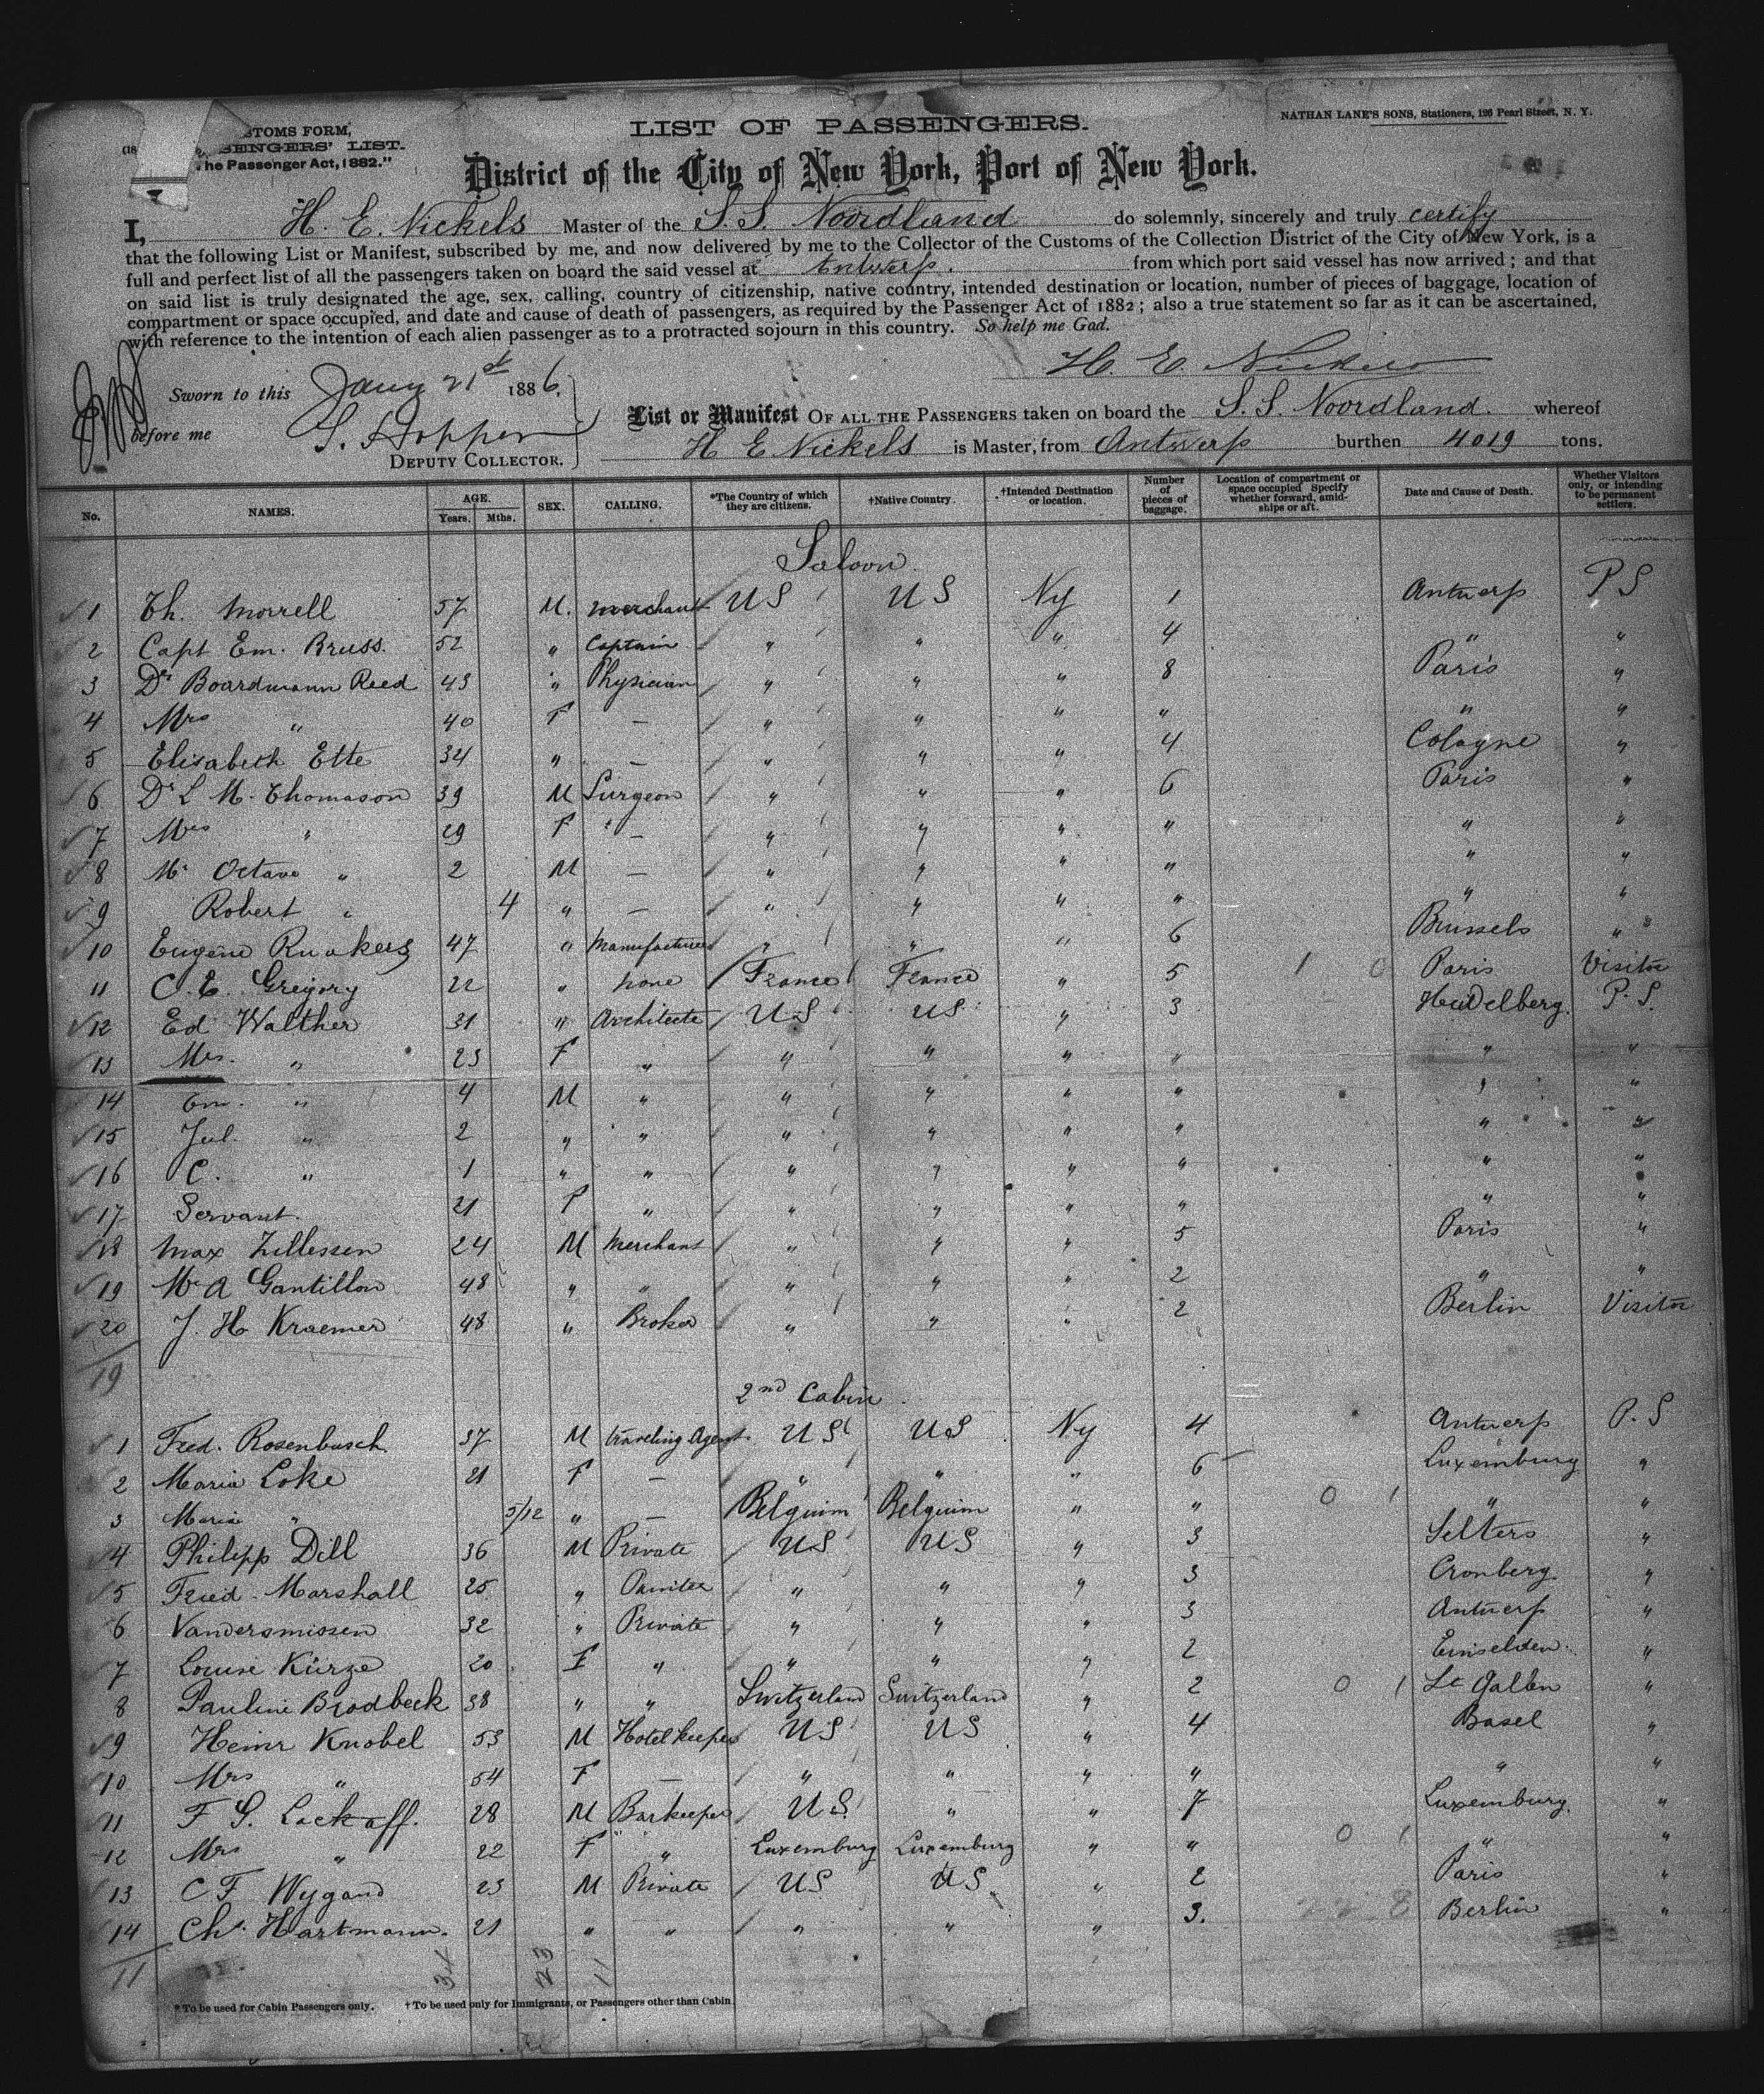 STOMS FORM,
SENGERS' LIST.
he Passenger Act, 1882."
LIST OF PASSENGERS.
NATHAN LANE'S SONS, Stationers, 126 Pearl Street, N. Y.
District of the City of New York, Port of New York.
I, H. E. Nickels Master of the S. S. Noordland do solemnly, sincerely and truly certify
that the following List or Manifest, subscribed by me, and now delivered by me to the Collector of the Customs of the Collection District of the City of New York, is a
full and perfect list of all the passengers taken on board the said vessel at Antwerp. from which port said vessel has now arrived; and that
on said list is truly designated the age, sex, calling, country of citizenship, native country, intended destination or location, number of pieces of baggage, location of
compartment or space occupied, and date and cause of death of passengers, as required by the Passenger Act of 1882; also a true statement so far as it can be ascertained,
with reference to the intention of each alien passenger as to a protracted sojourn in this country. So help me God.
H. E. Nickels
Sworn to this Jany 21st 1886.
before me S. Hopper
DEPUTY COLLECTOR.
List or Manifest OF ALL THE PASSENGERS taken on board the S. S. Noordland. whereof
H E Nickels is Master, from Antwerp burthen 4019 tons.
No. NAMES. AGE. Years. Mths. SEX. CALLING. *The Country of which they are citizens. †Native Country. †Intended Destination or location. Number of pieces of baggage. Location of compartment or space occupied Specify whether forward, amidships or aft. Date and Cause of Death. Whether Visitors only, or intending to be permanent settlers.
Saloon.
1 Th. Morrell 57 M. merchant US US Ny 1 Antwerp PS
2 Capt Em. Bruss. 52 " Captain " " " 4 " "
3 Dr Boardmann Reed 43 " Physician " " " 8 Paris "
4 Mrs " 40 F — " " " " " "
5 Elisabeth Ette 34 " — " " " 4 Cologne "
6 Dr L M. Thomason 39 M Surgeon " " " 6 Paris "
7 Mrs " 29 F — " " " " " "
8 Mr Octave " 2 M — " " " " " "
9 Robert " 4 " — " " " " " "
10 Eugene Ruakers 47 " Manufacturer " " " 6 Brussels " "
11 C. E. Gregory 22 " none France France " 5 1 0 Paris Visitor
12 Ed Walther 31 " Architecte US US " 3 Heidelberg. P. S.
13 Mrs. " 23 F " " " " " " "
14 Em. " 4 M " " " " " " "
15 Jul. " 2 " " " " " " " "
16 C. " 1 " " " " " " " "
17 Servant. 21 F " " " " " " "
18 Max Zillessen 24 M Merchant " " " 5 Paris "
19 Mr A Gantillon 48 " " " " " 2 " "
20 J. H Kraemer 48 " Broker " " " 2 Berlin Visitor
19
2nd Cabin
1 Fred. Rosenbusch. 37 M traveling Agent US US Ny 4 Antwerp P. S
2 Maria Loke 21 F — " " " 6 Luxemburg "
3 Maria " 5/12 " — Belguim Belguim " " 0 1 " "
4 Philipp Dill 36 M Private US US " 3 Selters "
5 Fried. Marshall 25 " " " " 3 Cronberg. "
6 Vandersmissen 32 " Private " " " 3 Antwerp "
7 Louise Kürze 20 F " " " " 2 "
8 Pauline Brodbeck 38 " " Switzerland Switzerland " 2 0 1 St Gallen "
9 Heinr Knobel 53 M Hotel keeper US US " 4 Basel "
10 Mrs " 54 F — " " " " " "
11 F S. Lockaff. 28 M Barkeeper US " " 7 Luxemburg. "
12 Mrs " 22 F " Luxemburg Luxemburg " " 0 1 " "
13 C F Wygand 23 M Private US US " 2 Paris "
14 Chs. Hartmann. 21 " " " " " 3. 22 8 Berlin "
11 34 23 11
* To be used for Cabin Passengers only. † To be used only for Immigrants, or Passengers other than Cabin